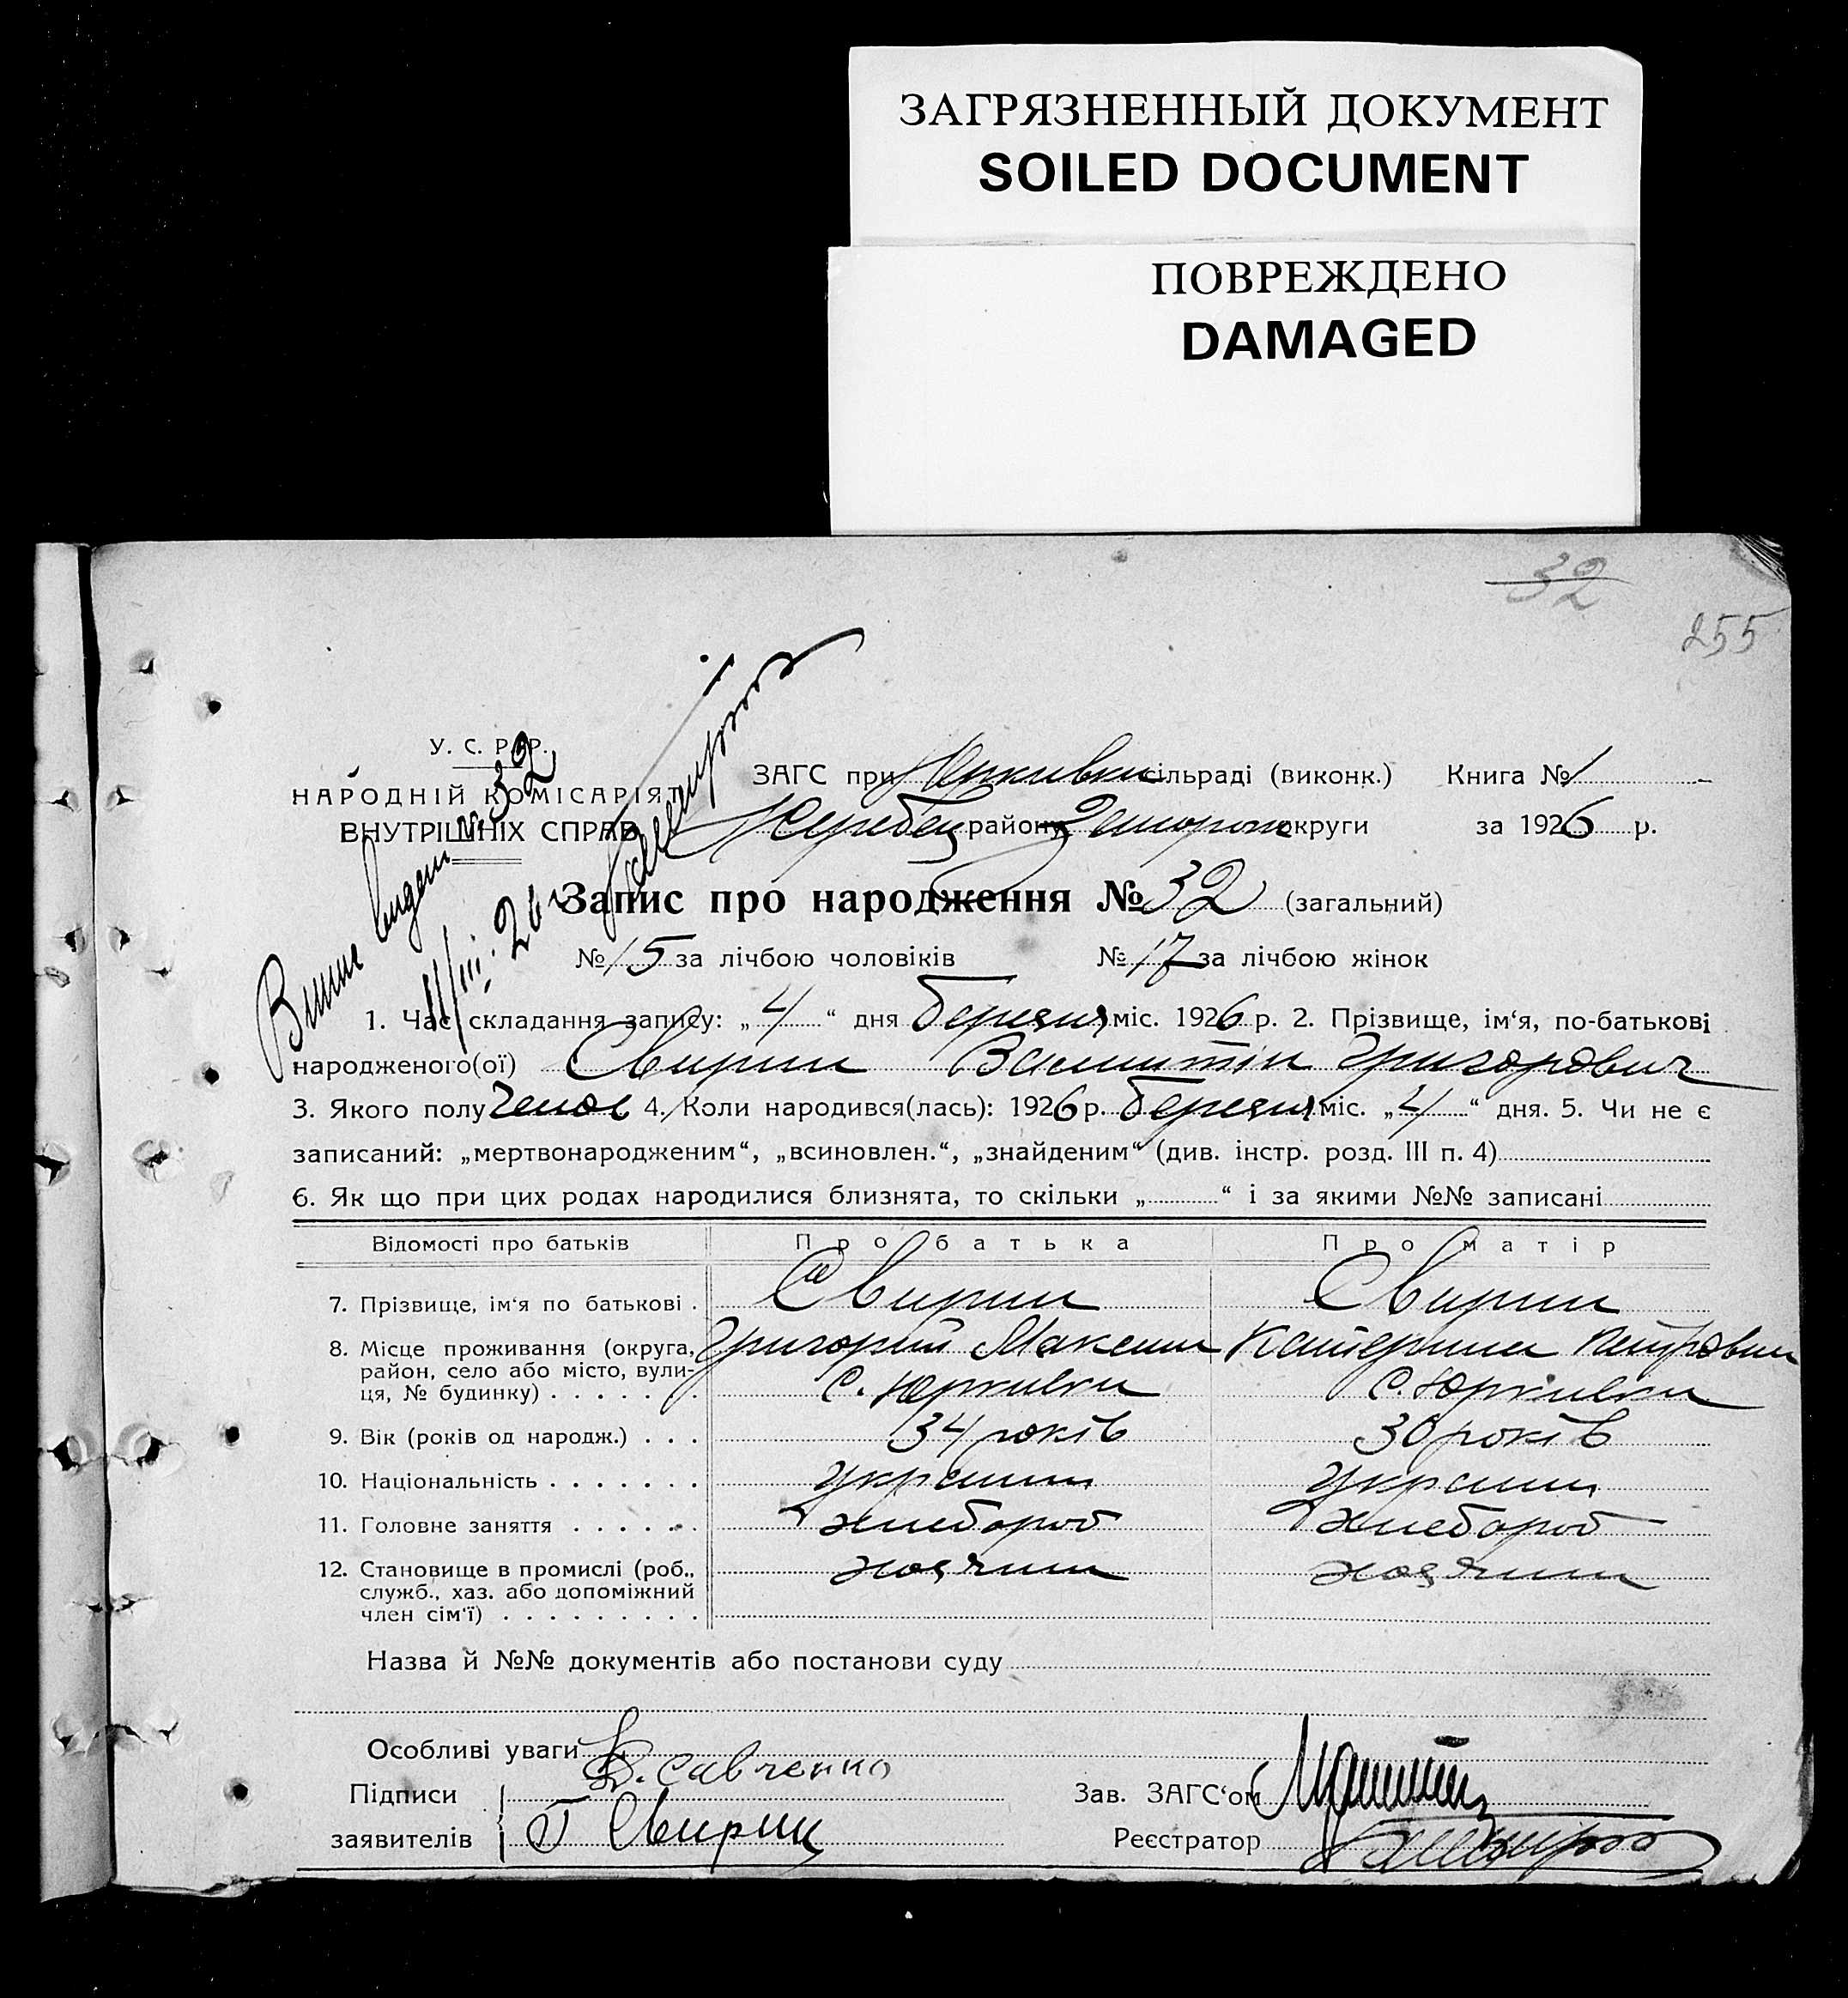 ЗАГРЯЗНЕННЫЙ ДОКУМЕНТ
SOILED DOCUMENT
ПОВРЕЖДЕНО
DAMAGED
32
255
У. С. Р. Р.
НАРОДНІЙ КОМІСАРІЯТ
ВНУТРІШНІХ СПРАВ
№ 32
11/III. 26 г
ЗАГС при Юркивки сільраді (виконк.) Книга № 1
Жеребец району Запорож округи за 1926 р.
Запис про народження № 32 (загальний)
№ 15 за лічбою чоловіків № 17 за лічбою жінок
1. Час складання запису: „4“ дня березня міс. 1926 р. 2. Прізвище, ім‘я, по-батькові
народженого(ої) Свирин Валентін Григорович
3. Якого полу Челов 4. Коли народився(лась): 1926 р. березня міс. „4“ дня. 5. Чи не є
записаний: „мертвонародженим“, „всиновлен.“, „знайденим“ (див. інстр. розд. III п. 4)
6. Як що при цих родах народилися близнята, то скільки „ “ і за якими №№ записані
Відомості про батьків Про батька Про матір
7. Прізвище, ім‘я по батькові . Свирин Свирин
8. Місце проживання (округа, Григорий Максим Катерина Петровны
район, село або місто, вули-
ця, № будинку) . . . . . . . с. Юркивки с. Юркивки
9. Вік (років од народж.) . . . 34 років 30 років
10. Національність . . . . . . . україн україн
11. Головне заняття . . . . . . хлебороб хлебороб
12. Становище в промислі (роб., хозяин хозяин
служб., хаз. або допоміжний
член сім‘ї) . . . . . . . . .
Назва й №№ документів або постанови суду
Особливі уваги
Підписи Савченко Зав. ЗАГС‘ом
заявителів Г Свирин Реєстратор